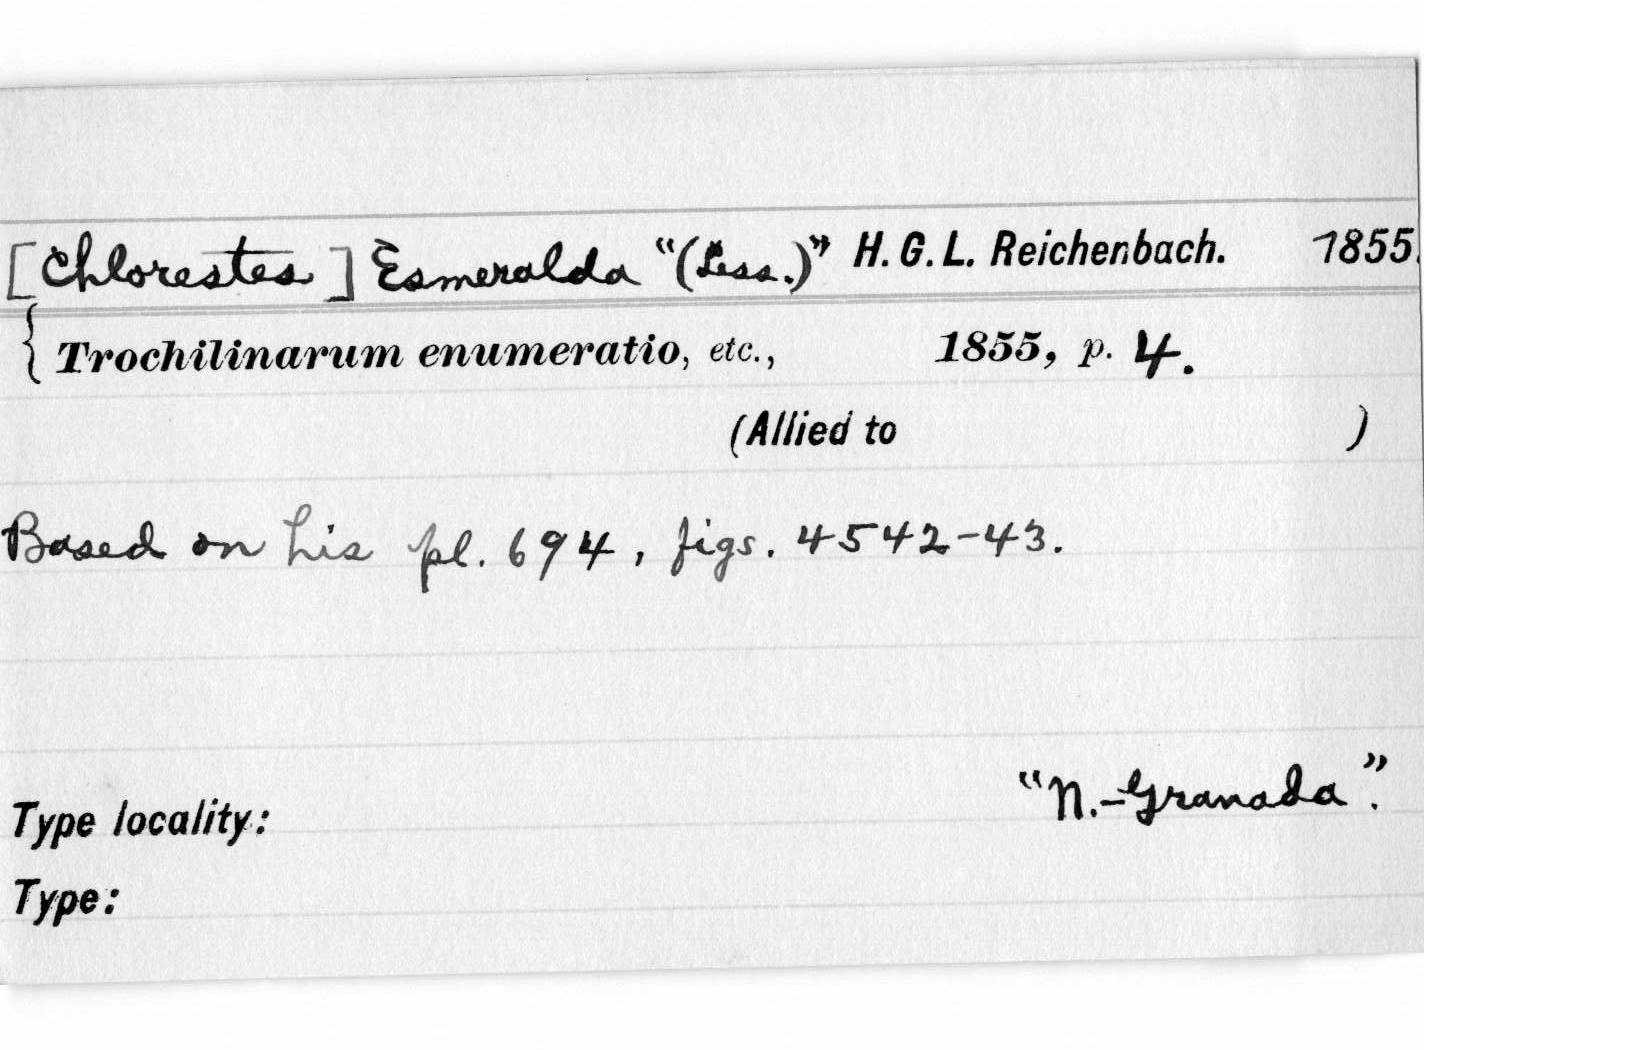 [Chlorestes] Esmeralda "(Less.)" H. G. L. Reichenbach. 1855.
{ Trochilinarum enumeratio, etc., 1855, p. 4.
(Allied to )
Based on his pl. 694, figs. 4542-43.
Type locality: "N.-Granada".
Type: